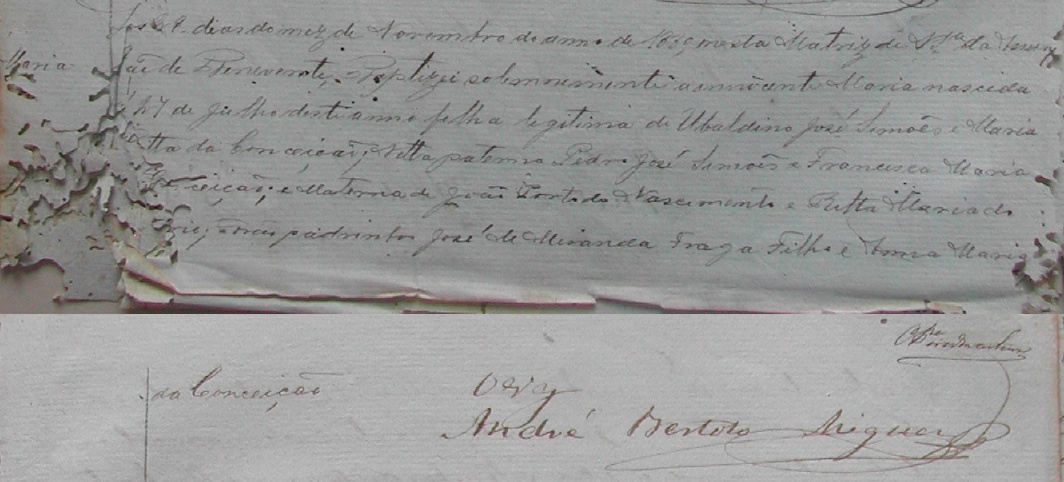 dias do mez de Novembro do anno de nesta Matriz de Sta da Assum
Maria
ção de Benevente, Baptizei solemnemente a innocente Maria nascida
de Julho deste anno filha legitima de Ubaldino José Simoẽs e Maria
da Conceição; Netta paterna Pedro José Simoẽs e Francisca Maria
Conceição; e Materna de João do Nascimento e Ritta Maria do
forão padrinhos José de Miranda Fraga Filho e Anna Maria
da Conceição
O Vigº
André Bertolo